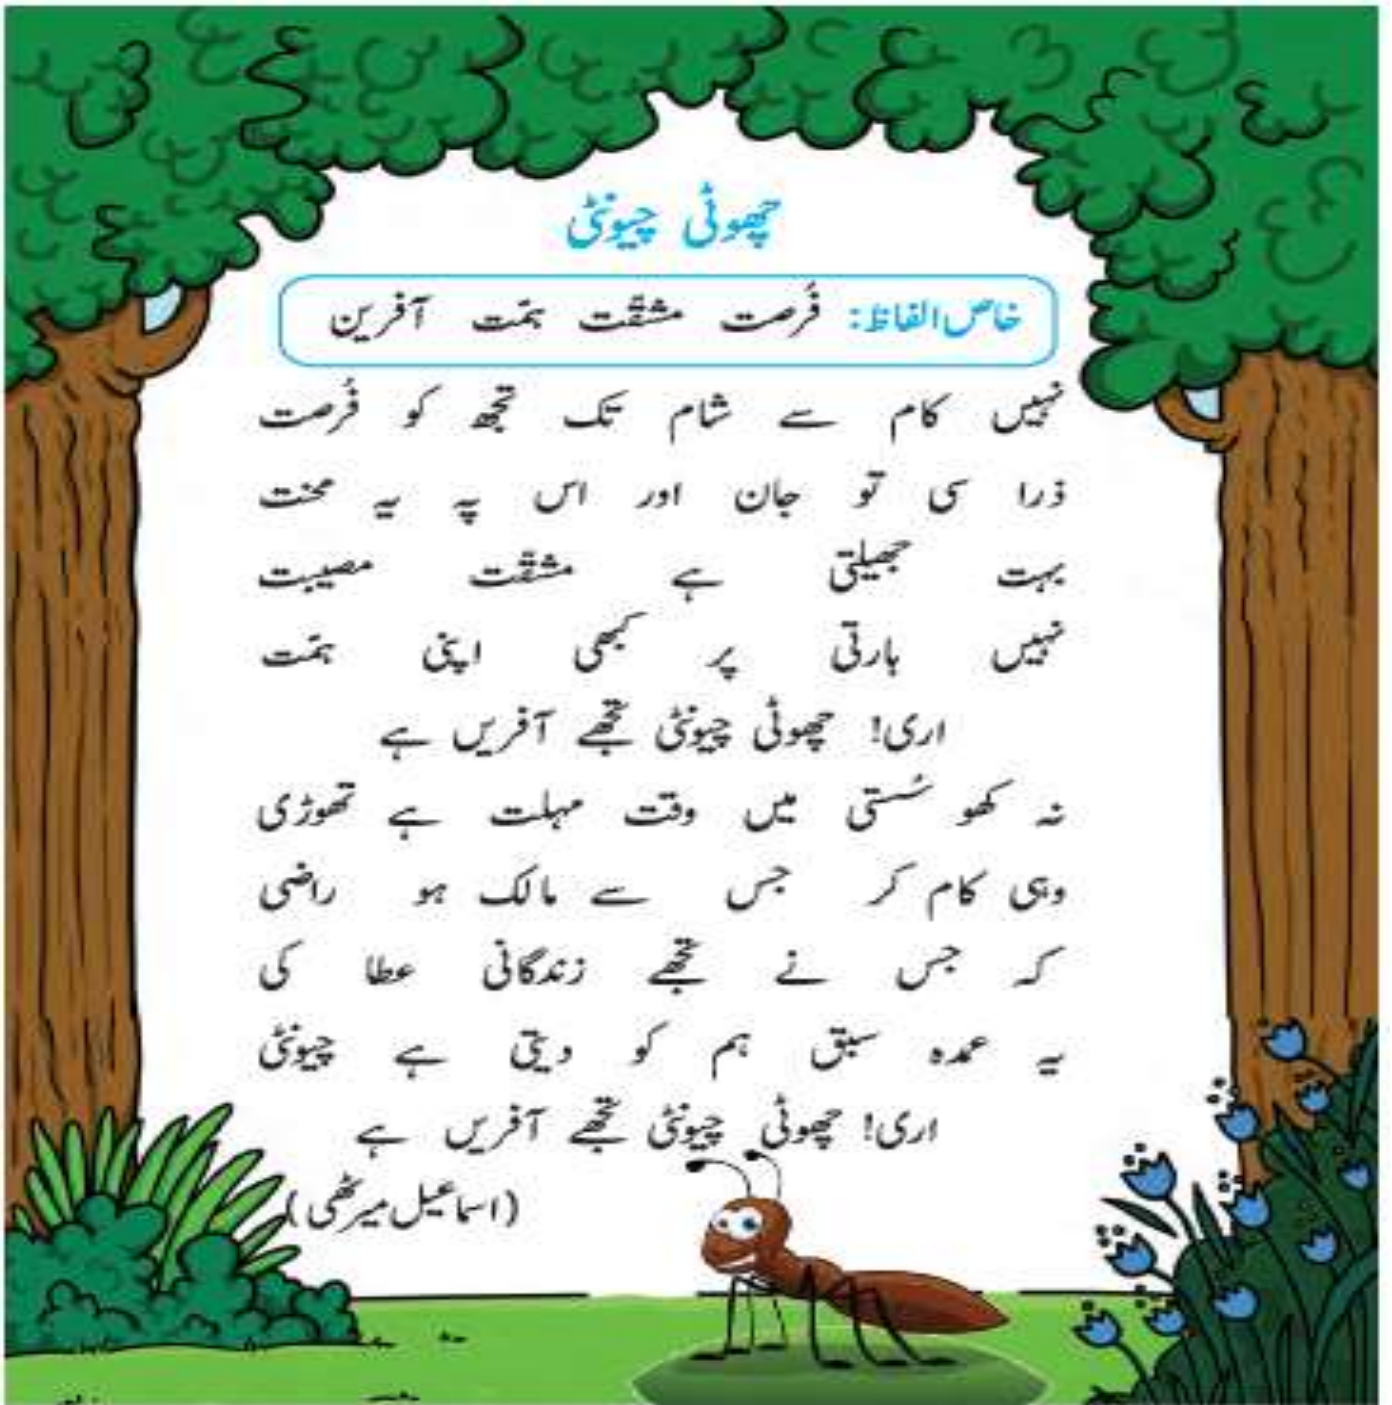 چھوٹی چیونٹی
خاص الفاظ: فُرصت مشقّت ہمّت آفرین
نہیں کام سے شام تک تجھ کو فُرصت
ذرا سی تو جان اور اس پہ یہ محنت
بہت جھیلتی ہے مشقّت مصیبت
نہیں ہارتی پر کبھی اپنی ہمّت
اری! چھوٹی چیونٹی تجھے آفریں ہے
نہ کھو سُستی میں وقت مہلت ہے تھوڑی
وہی کام کر جس سے مالک ہو راضی
کہ جس نے تجھے زندگانی عطا کی
یہ عمدہ سبق ہم کو دیتی ہے چیونٹی
اری! چھوٹی چیونٹی تجھے آفریں ہے
(اسماعیل میرٹھی)